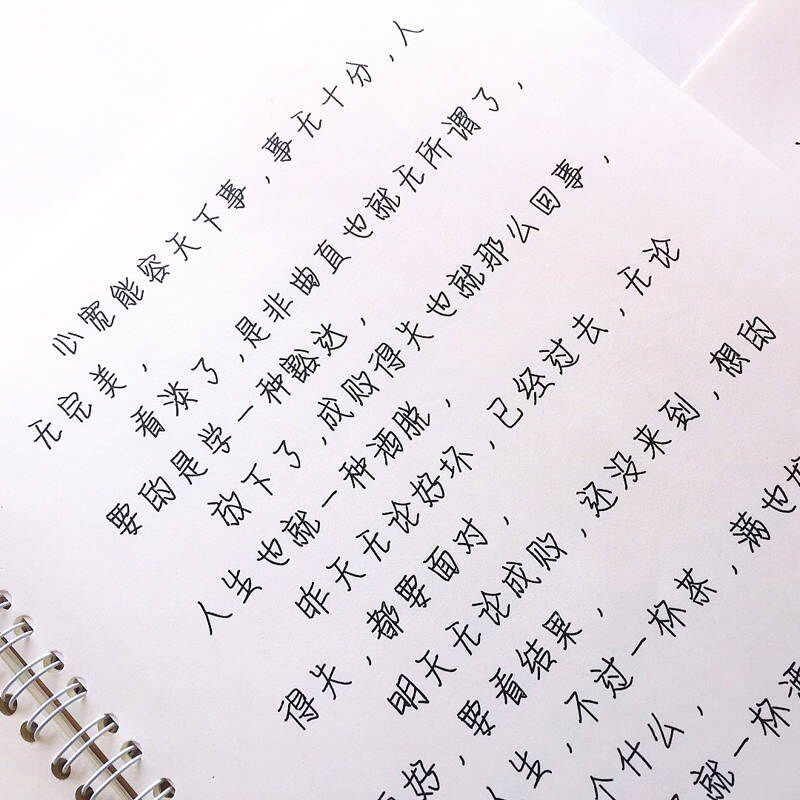 心宽能容天下事，事无十分，人
无完美，
看淡了，是非曲直也就无所谓了，
要的是学一种豁达，
放下了，成败得失也就那么回事，
人生也就一种洒脱，
昨天无论好坏，已经过去，无论
得失，都要面对，
明天无论成败，还没来到，想的
好，要看结果，
人生，不过一杯茶，满也
个什么，
就一杯酒